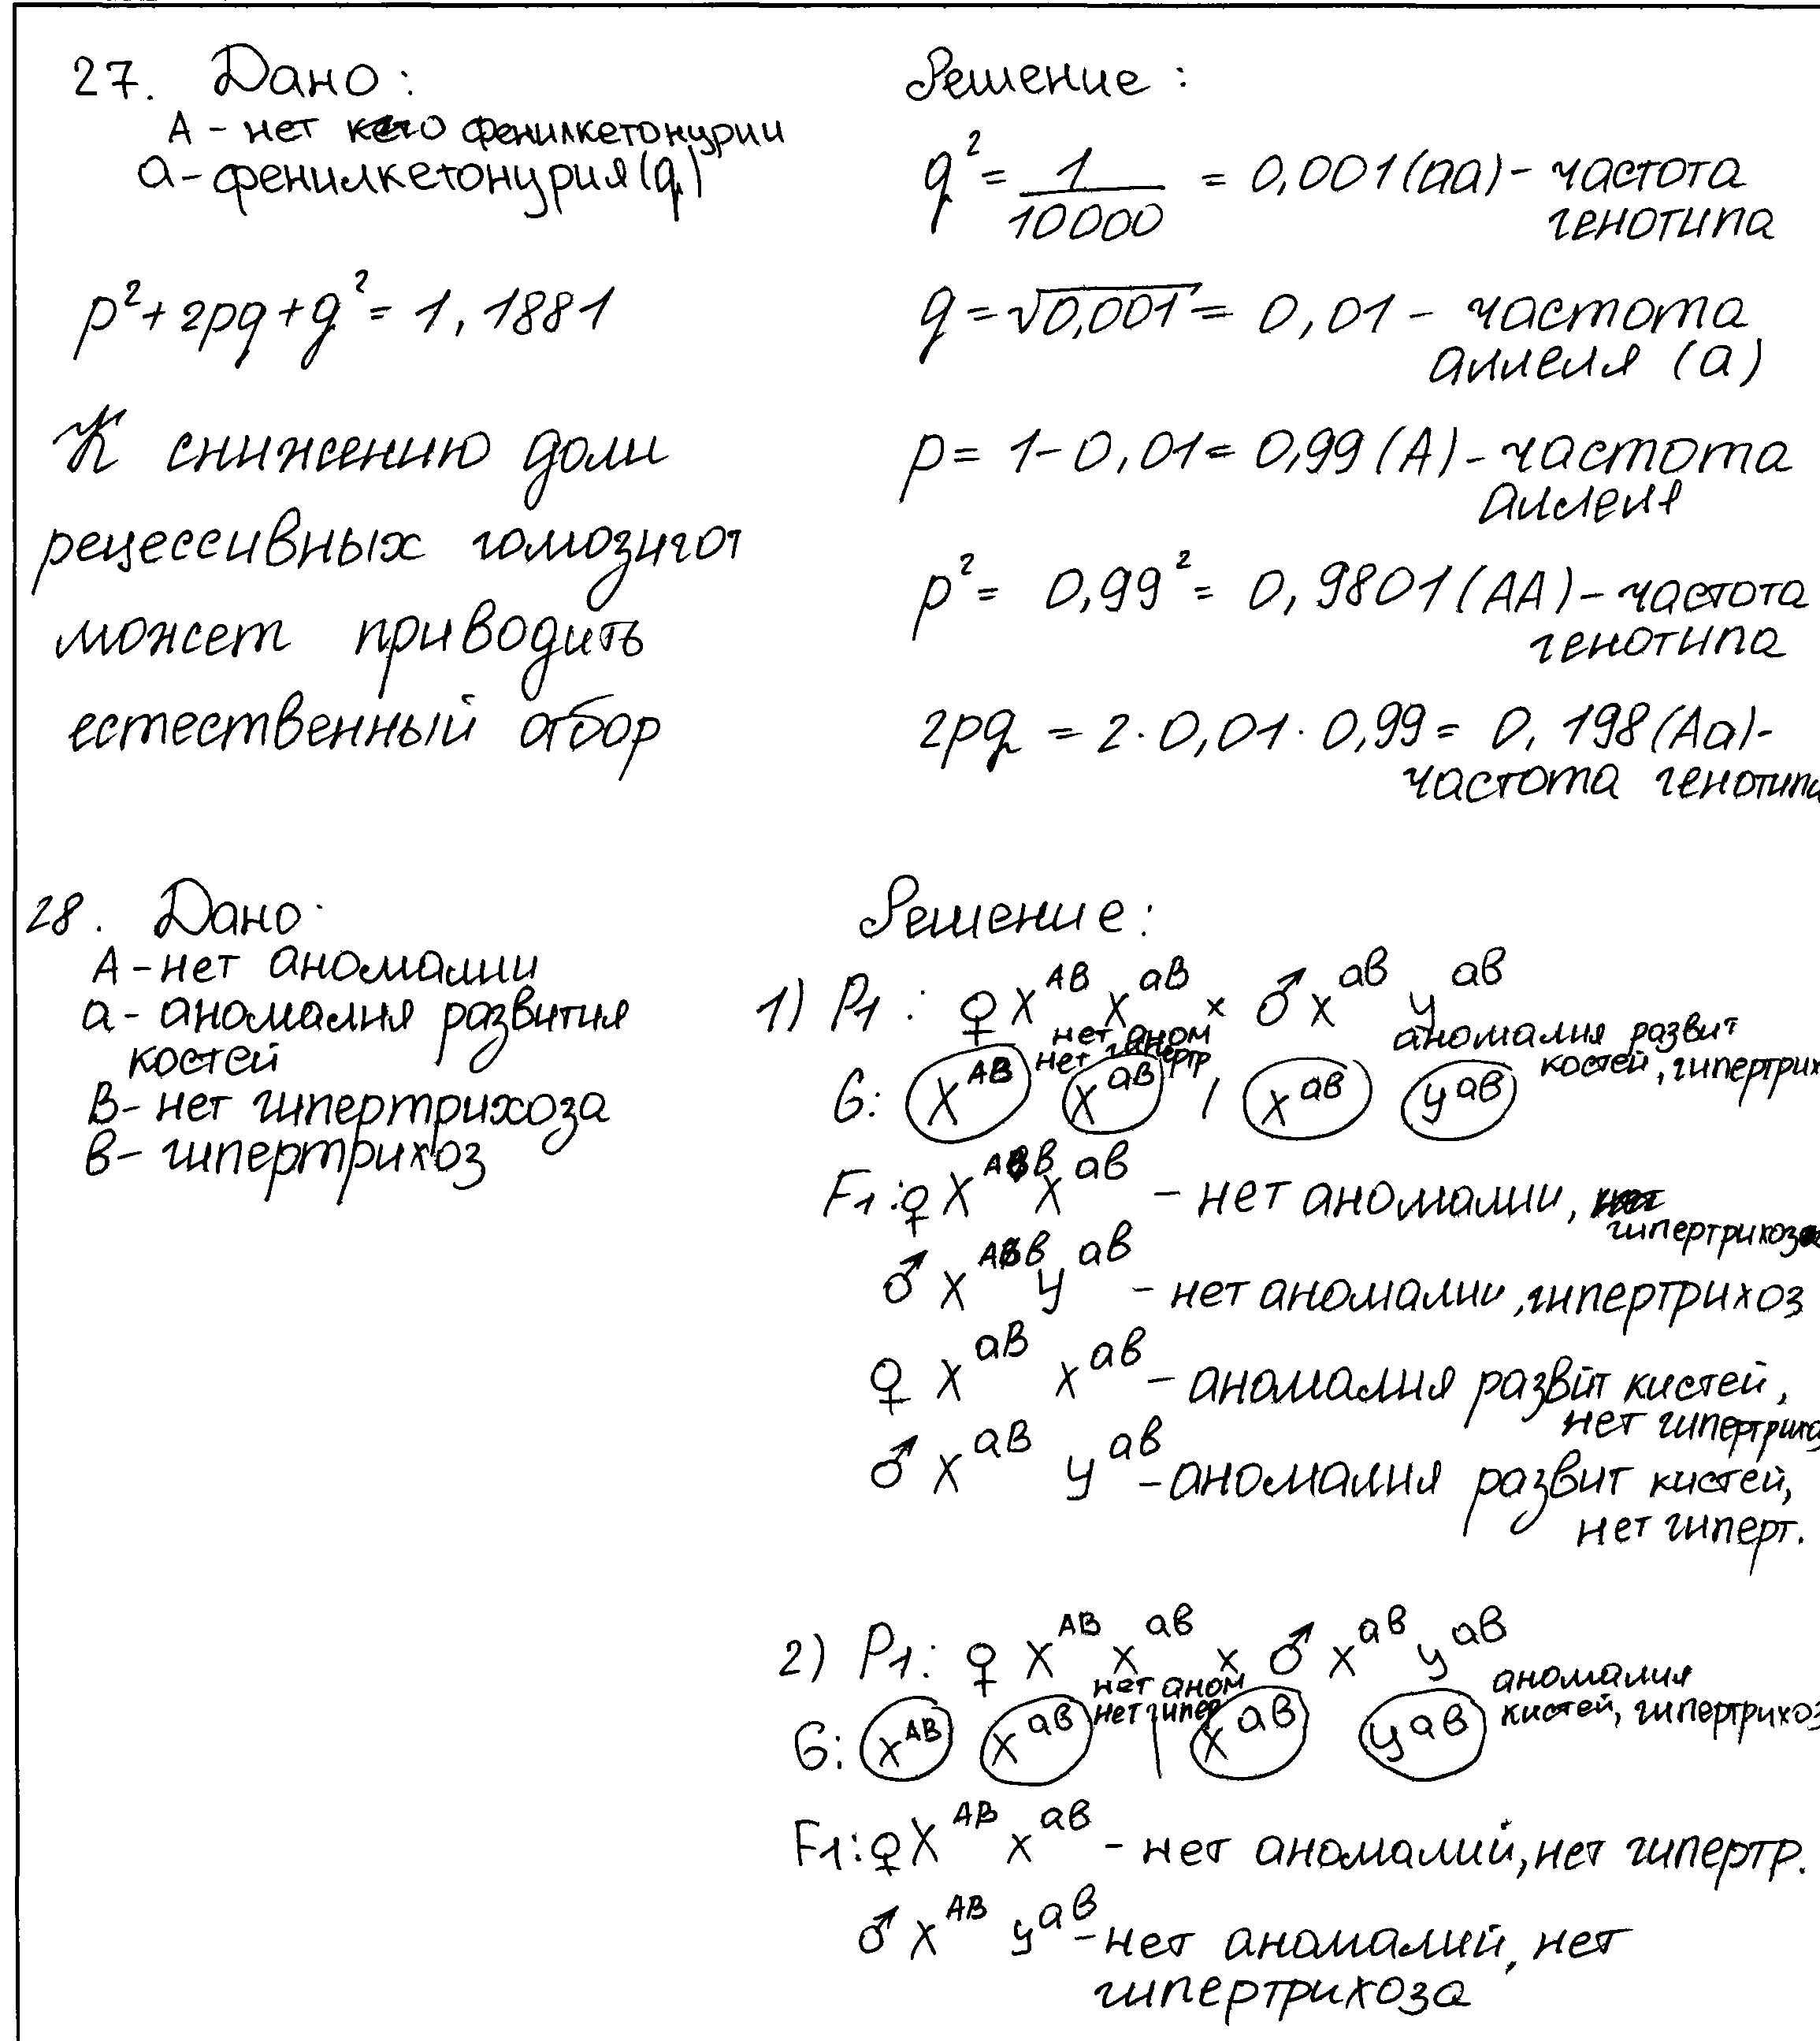 27. Дано:
А - нет фенилкетонурии
а - фенилкетонурия (q)
p² + 2pq + q² = 1,1881
К снижению доли
рецессивных гомозигот
может приводить
естественный отбор
Решение:
q² = 1/10000 = 0,001 (аа) - частота
генотипа
q = √0,001 = 0,01 - частота
аллеля (а)
p = 1 - 0,01 = 0,99 (А) - частота
аллеля
p² = 0,99² = 0,9801 (АА) - частота
генотипа
2pq = 2 · 0,01 · 0,99 = 0,198 (Аа) -
частота генотипа
28. Дано:
А - нет аномалии
а - аномалия развития
костей
В - нет гипертрихоза
в - гипертрихоз
Решение:
1) P1: ♀ X^АВ X^аВ × ♂ X^ав У^ав
нет аном
нет гиперр
аномалия развит
костей, гипертрих
G: X^АВ X^аВ / X^ав У^ав
F1: ♀ X^Ав X^ав - нет аномалии,
гипертрихоз
♂ X^Ав У^ав - нет аномалии, гипертрихоз
♀ X^аВ X^ав - аномалия развит кистей,
нет гипертрихо
♂ X^аВ У^ав - аномалия развит кистей,
нет гиперт.
2) P1: ♀ X^АВ X^ав × ♂ X^ав У^ав
нет аном
нет гипер
аномалия
кистей, гипертрихоз
G: X^АВ X^ав | X^ав У^ав
F1: ♀ X^АВ X^ав - нет аномалий, нет гипертр.
♂ X^АВ У^ав - нет аномалий, нет
гипертрихоза